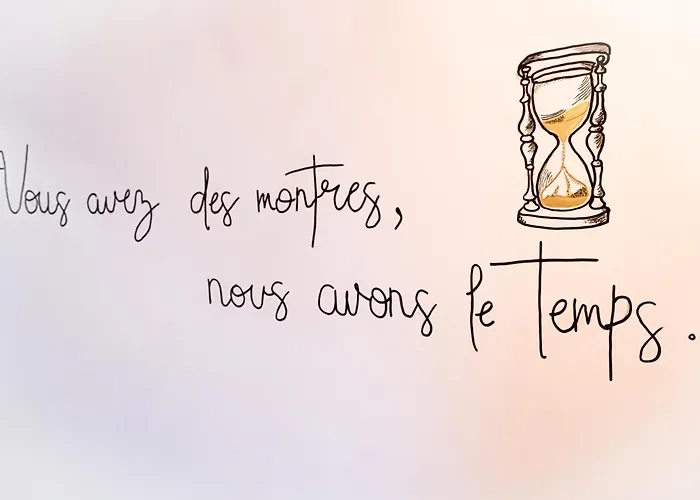 Vous avez des montres,
nous avons le Temps.